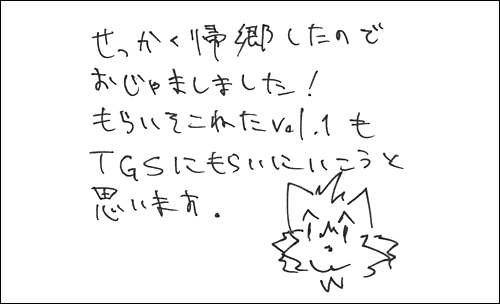 せっかく帰郷したので
おじゃましました!
もらいそこねたvol.1も
TGSにもらいにいこうと
思います.